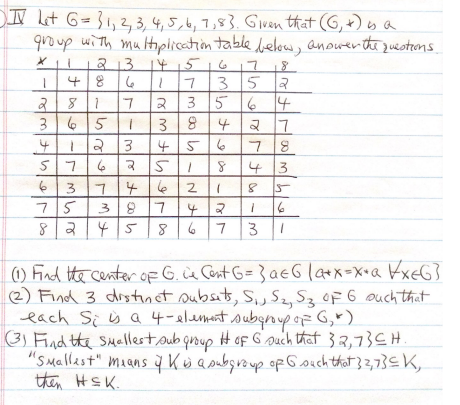 IV Let G = {1, 2, 3, 4, 5, 6, 7, 8}. Given that (G, *) is a
group with multiplication table below, answer the questions.
* 1 2 3 4 5 6 7 8
1 4 8 6 1 7 3 5 2
2 8 1 7 2 3 5 6 4
3 6 5 1 3 8 4 2 7
4 1 2 3 4 5 6 7 8
5 7 6 2 5 1 8 4 3
6 3 7 4 6 2 1 8 5
7 5 3 8 7 4 2 1 6
8 2 4 5 8 6 7 3 1
(1) Find the center of G. i.e. Cent G = {a∈G | a*x = x*a ∀x∈G}
(2) Find 3 distinct subsets, S₁, S₂, S₃ of G such that
each Sᵢ is a 4-element subgroup of G, *)
(3) Find the smallest subgroup H of G such that {2,7} ⊆ H.
"Smallest" means if K is a subgroup of G such that {2,7} ⊆ K,
then H ⊆ K.